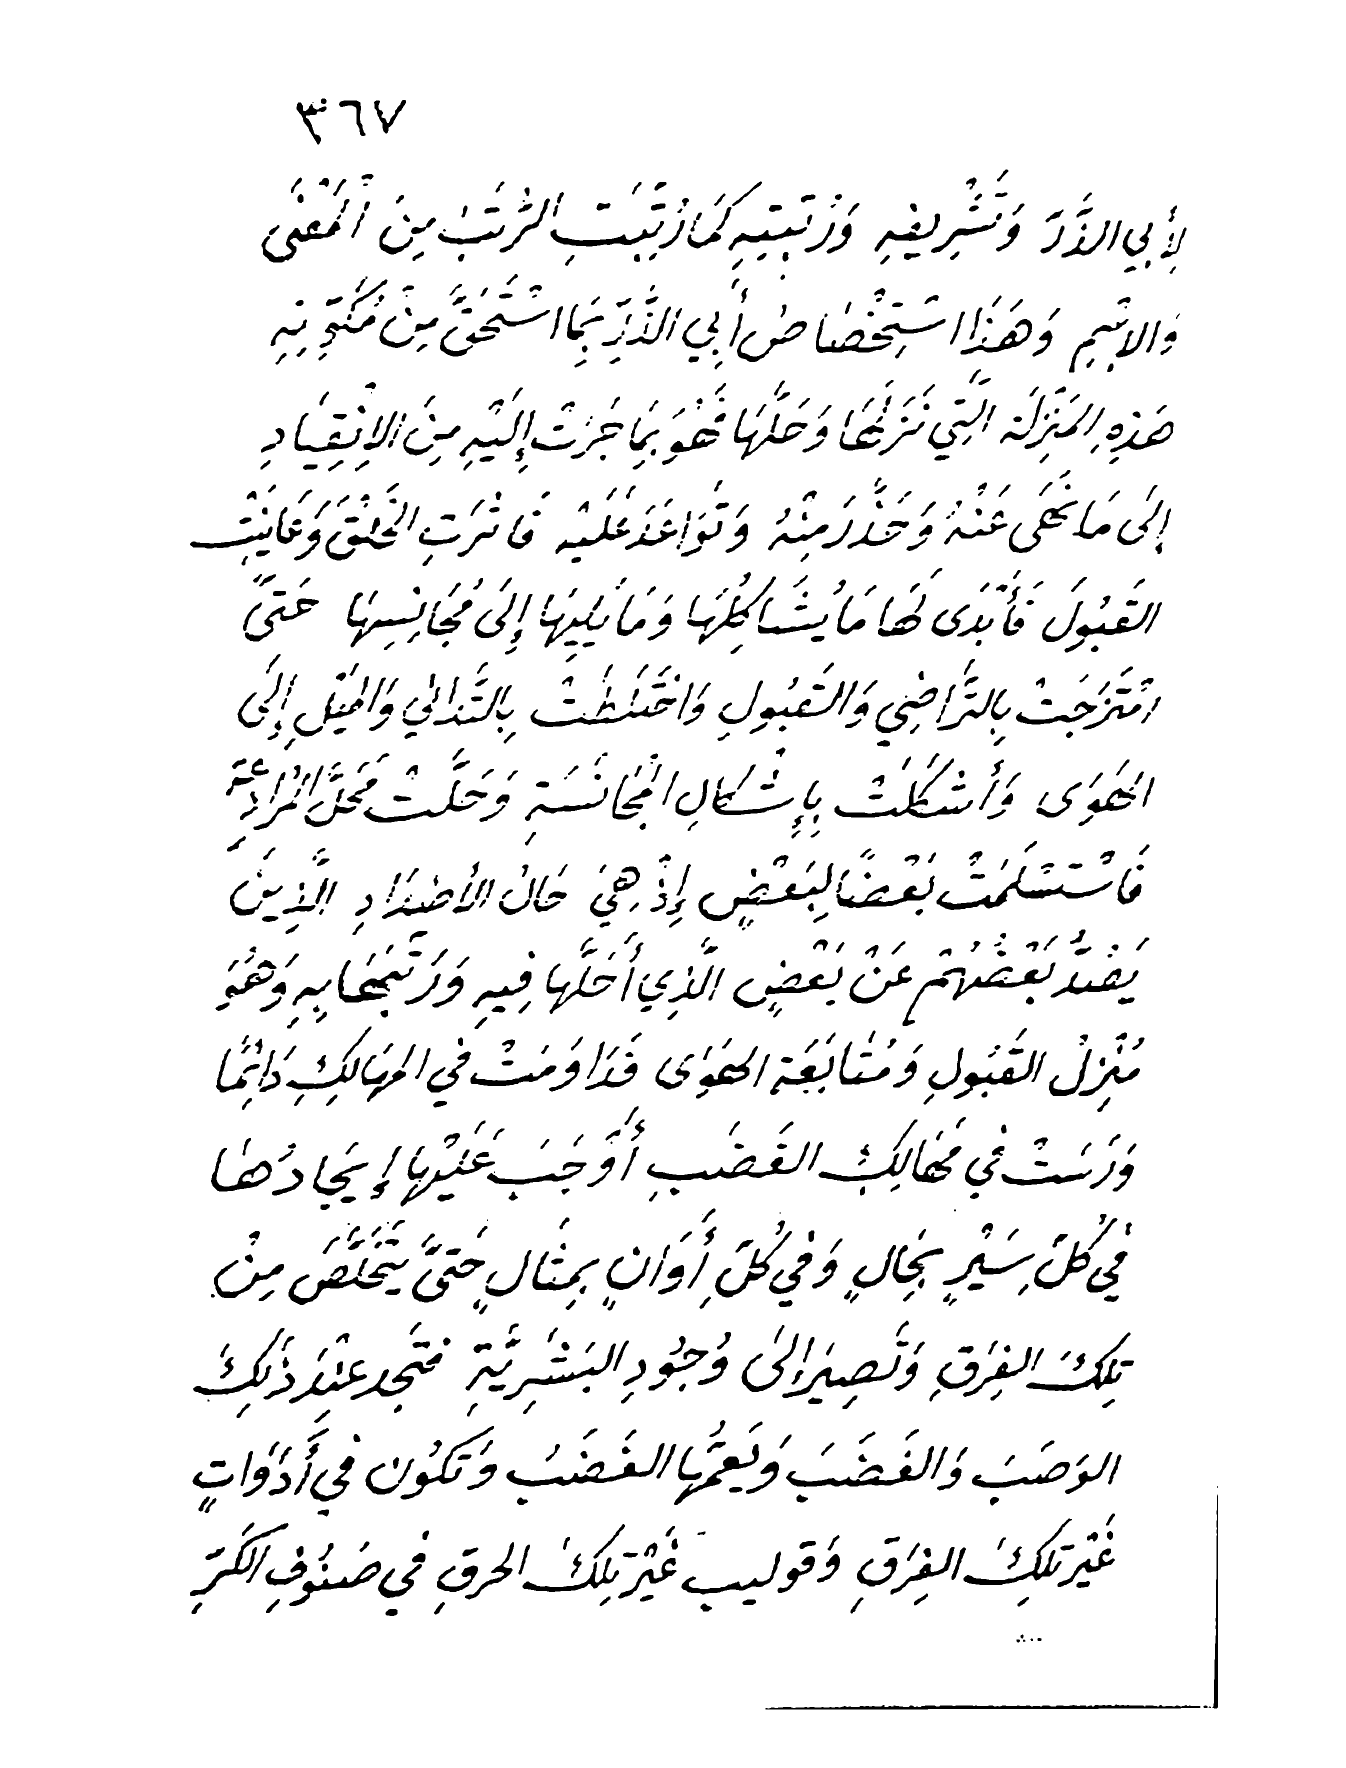 ٣٦٧
لِأَبِي الذَّرِّ وَتَشْرِيفِهِ وَرُتْبَتِهِ كَمَا رُتِّبَتِ الرُّتَبُ مِنَ الْمَعْنَى
وَالاِسْمِ وَهَذَا اسْتِخْصَاصُ أَبِي الذَّرِّ بِمَا اسْتَحَقَّ مِنْ مُكَوِّنِهِ
هَذِهِ المَنْزِلَةَ الَّتِي نَزَلَهَا وَحَلَّهَا فَهُوَ بِمَا جَرَتْ إِلَيْهِ مِنَ الاِنْقِيَادِ
إِلَى مَا نَهَى عَنْهُ وَحَذَّرَ مِنْهُ وَتَوَاعَدَ عَلَيْهِ فَأَثَرَتِ الخَلْقَ وَعَايَنَتِ
القَبُولَ فَأَبْدَى لَهَا مَا يُشَاكِلُهَا وَمَا يَلِيهَا إِلَى مُجَانِسِهَا حَتَّى
امْتَزَجَتْ بِالتَّرَاضِي وَالقَبُولِ وَاخْتَلَطَتْ بِالتَّدَانِي وَالمَيْلِ إِلَى
الهَوَى وَأَشْكَلَتْ بِإِشْكَالِ المُجَانَسَةِ وَحَلَّتْ مَحَلَّ المُرَادَعَةِ
فَاسْتَسْلَمَتْ بَعْضًا لِبَعْضٍ إِذْ هِيَ حَالُ الأَضْدَادِ الَّذِينَ
يَصُدُّ بَعْضُهُمْ عَنْ بَعْضٍ الَّذِي أَحَلَّهَا فِيهِ وَرَتَّبَهَا بِهِ وَهُوَ
مُنْزِلُ القَبُولِ وَمُتَابَعَةِ الهَوَى فَدَاوَمَتْ فِي المَهَالِكِ دَائِمًا
وَرَسَتْ فِي مَهَالِكِ الغَضَبِ أَوْجَبَ عَلَيْهَا إِيجَادُهَا
فِي كُلِّ سَيْرٍ بِحَالٍ وَفِي كُلِّ أَوَانٍ بِمِثَالٍ حَتَّى يَتَخَلَّصَ مِنْ
تِلْكَ الفِرَقِ وَتَصِيرَ إِلَى وُجُودِ البَشَرِيَّةِ فتَجِد عِنْدَ ذَلِكَ
الوَصَبَ وَالغَضَبَ وَيَعُمُّهَا الغَضَبُ وَتَكُون فِي أَدَوَاتٍ
غَيْرَ تِلْكَ الفِرَقِ وَقَوليب غَيْرَ تِلْكَ الحرقِ فِي صُنُوفِ الكَرِّ